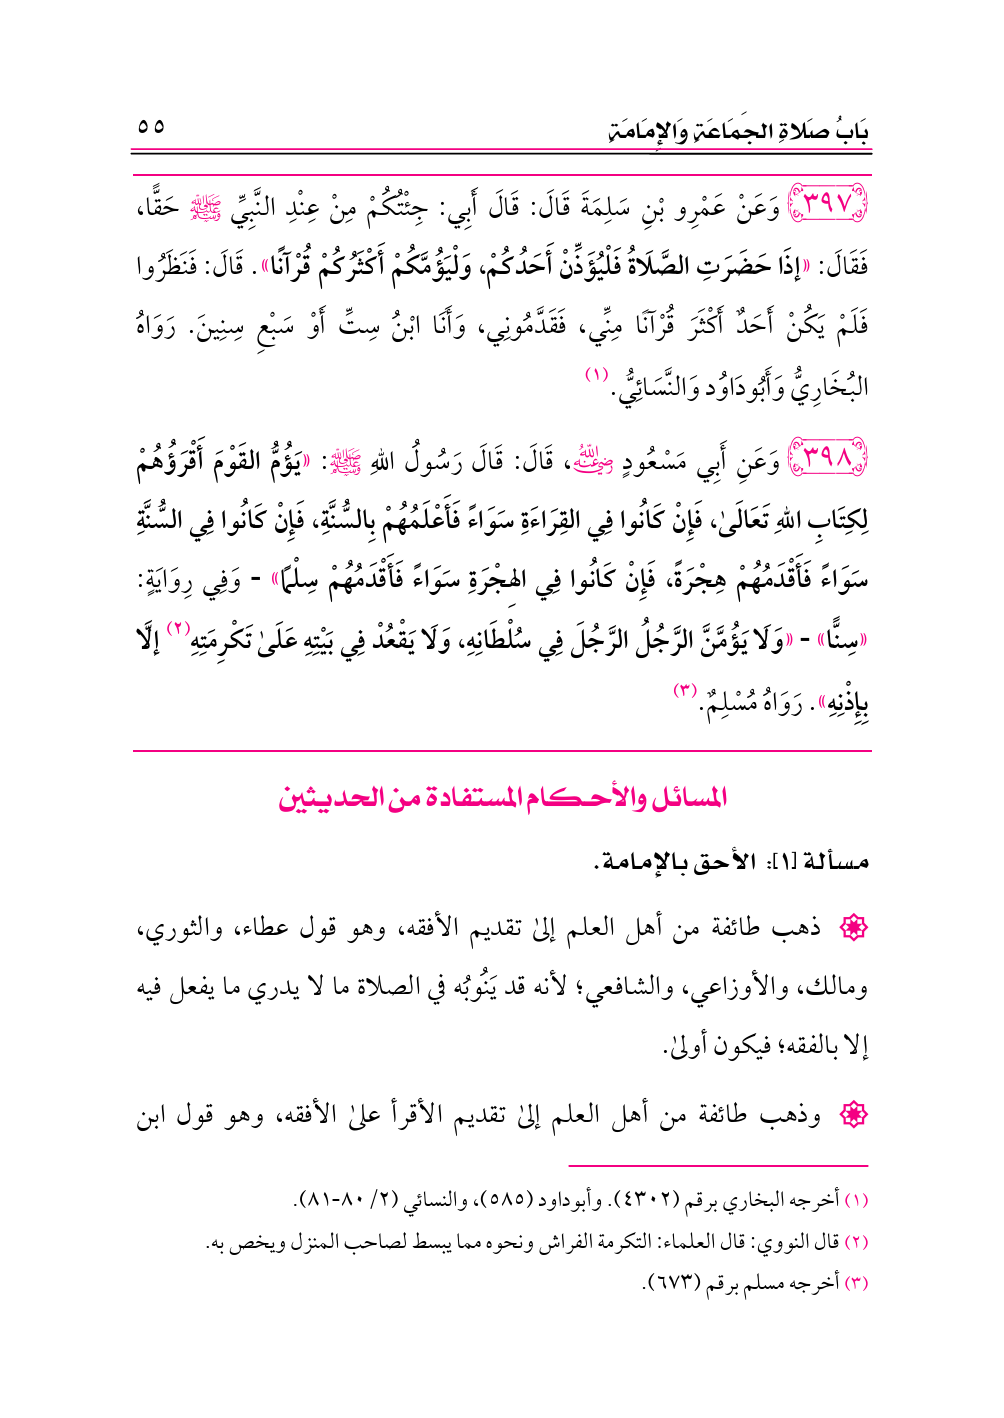 بَابُ صَلَاةِ الجَمَاعَةِ وَالإِمَامَةِ ٥٥
٣٩٧ وَعَنْ عَمْرِو بْنِ سَلِمَةَ قَالَ: قَالَ أَبِي: جِئْتُكُمْ مِنْ عِنْدِ النَّبِيِّ ﷺ حَقًّا،
فَقَالَ: «إذَا حَضَرَتِ الصَّلَاةُ فَلْيُؤَذِّنْ أَحَدُكُمْ، وَلْيَؤُمَّكُمْ أَكْثَرُكُمْ قُرْآنًا». قَالَ: فَنَظَرُوا
فَلَمْ يَكُنْ أَحَدٌ أَكْثَرَ قُرْآنًا مِنِّي، فَقَدَّمُونِي، وَأَنَا ابْنُ سِتِّ أَوْ سَبْعِ سِنِينَ. رَوَاهُ
البُخَارِيُّ وَأَبُودَاوُد وَالنَّسَائِيُّ.(١)
٣٩٨ وَعَنِ أَبِي مَسْعُودٍ رضي الله عنه، قَالَ: قَالَ رَسُولُ اللهِ ﷺ: «يَؤُمُّ القَوْمَ أَقْرَؤُهُمْ
لِكِتَابِ اللهِ تَعَالَىٰ، فَإِنْ كَانُوا فِي القِرَاءَةِ سَوَاءً فَأَعْلَمُهُمْ بِالسُّنَّةِ، فَإِنْ كَانُوا فِي السُّنَّةِ
سَوَاءً فَأَقْدَمُهُمْ هِجْرَةً، فَإِنْ كَانُوا فِي الهِجْرَةِ سَوَاءً فَأَقْدَمُهُمْ سِلْمًا» - وَفِي رِوَايَةٍ:
«سِنًّا» - «وَلَا يَؤُمَّنَّ الرَّجُلُ الرَّجُلَ فِي سُلْطَانِهِ، وَلَا يَقْعُدْ فِي بَيْتِهِ عَلَىٰ تَكْرِمَتِهِ(٢) إلَّا
بِإِذْنِهِ». رَوَاهُ مُسْلِمٌ.(٣)
المسائل والأحكام المستفادة من الحديثين
مسألة [١]: الأحق بالإمامة.
ذهب طائفة من أهل العلم إلىٰ تقديم الأفقه، وهو قول عطاء، والثوري،
ومالك، والأوزاعي، والشافعي؛ لأنه قد يَنُوبُه في الصلاة ما لا يدري ما يفعل فيه
إلا بالفقه؛ فيكون أولىٰ.
وذهب طائفة من أهل العلم إلىٰ تقديم الأقرأ علىٰ الأفقه، وهو قول ابن
(١) أخرجه البخاري برقم (٤٣٠٢). وأبوداود (٥٨٥)، والنسائي (٢/ ٨٠-٨١).
(٢) قال النووي: قال العلماء: التكرمة الفراش ونحوه مما يبسط لصاحب المنزل ويخص به.
(٣) أخرجه مسلم برقم (٦٧٣).